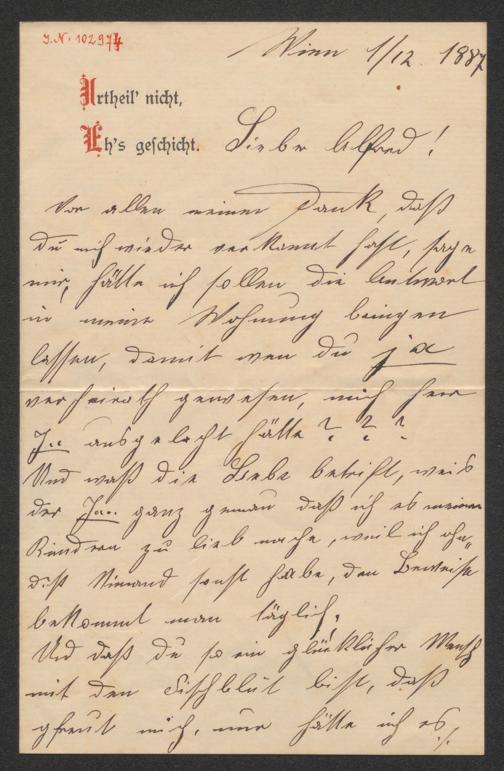 J.N. 102974
Wien 1/12. 1887
Urtheil' nicht,
Eh's geschicht.
Lieber Alfred!
Vor allen meinen Dank, daß
du mich wieder verkannt hast, sage
mir, hätte ich sollen die Antwort
in meine Wohnung bringen
lassen, damit wen du ja
verheirath gewesen, mich herr
J.. ausgelacht hätte ? ? ?
Und waß die Liebe betrift, weis
der Jn.. ganz genau daß ich es meinen
Kindern zu lieb mache, weil ich ohn„
diß Niemand sonst habe, den Beweise
bekommt man täglich.
Und daß du so ein glücklicher Mensch
mit den Fischblut bist, daß
gfreut mich, nur hätte ich es ./.